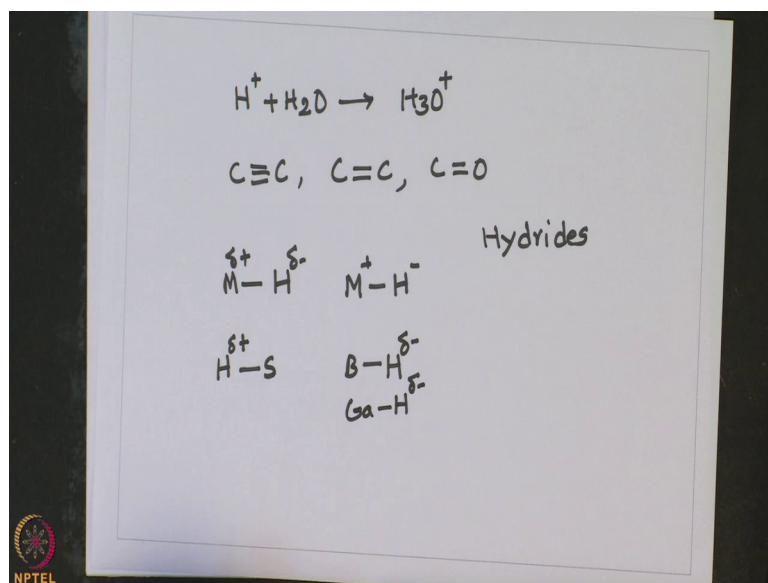 H⁺ + H2O → H3O⁺
C≡C, C=C, C=O
Hydrides
δ+ δ-
M—H M⁺—H⁻
δ+ δ-
H—S B—H
δ-
Ga—H
NPTEL